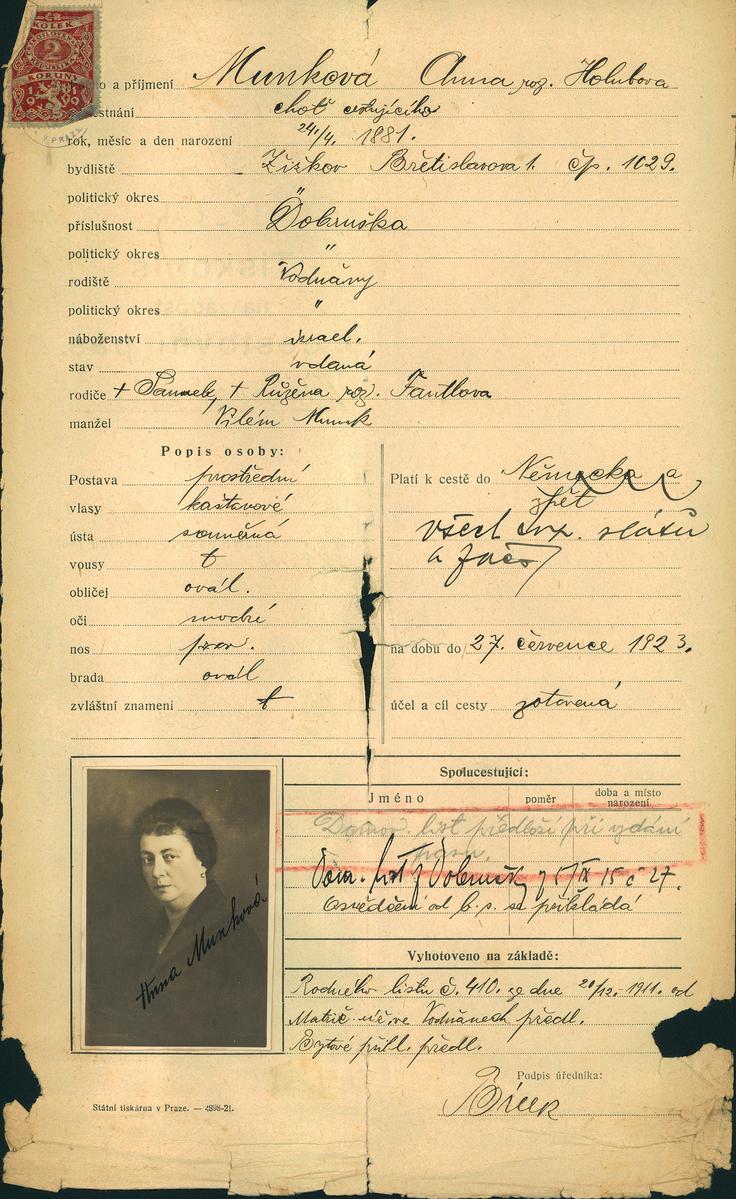 ČR
KOLEK
2
KORUNY
1919
V PRAZE
o a příjmení Munková Anna roz. Holubova
stnání choť cestujícího
rok, měsíc a den narození 24./4. 1881.
bydliště Žižkov Břetislavova 1. čp. 1029.
politický okres "
příslušnost Dobruška
politický okres "
rodiště Vodňany
politický okres "
náboženství israel.
stav vdaná
rodiče + Samuel, + Růžena roz. Fantlova
manžel Vilém Munk
Popis osoby:
Postava prostřední
vlasy kaštanové
ústa souměrná
vousy
obličej ovál.
oči modré
nos prav.
brada ovál
zvláštní znamení
Platí k cestě do Německa a
zpět
všech evr. států
a zpět
na dobu do 27. července 1923.
účel a cíl cesty zotavená
Spolucestující:
Jméno poměr doba a místo narození
Domov. list předloží při vydání
pasu.
Dom. list z Dobrušky z IX 15 č 27.
Osvědčení od b. s. se přikládá
Vyhotoveno na základě:
Rodného listu č. 410. ze dne 20/12. 1911. od
Matrič. úř. ve Vodňanech předl.
Bytové přihl. předl.
Podpis úředníka:
Anna Munková
Státní tiskárna v Praze. — 4898-21.